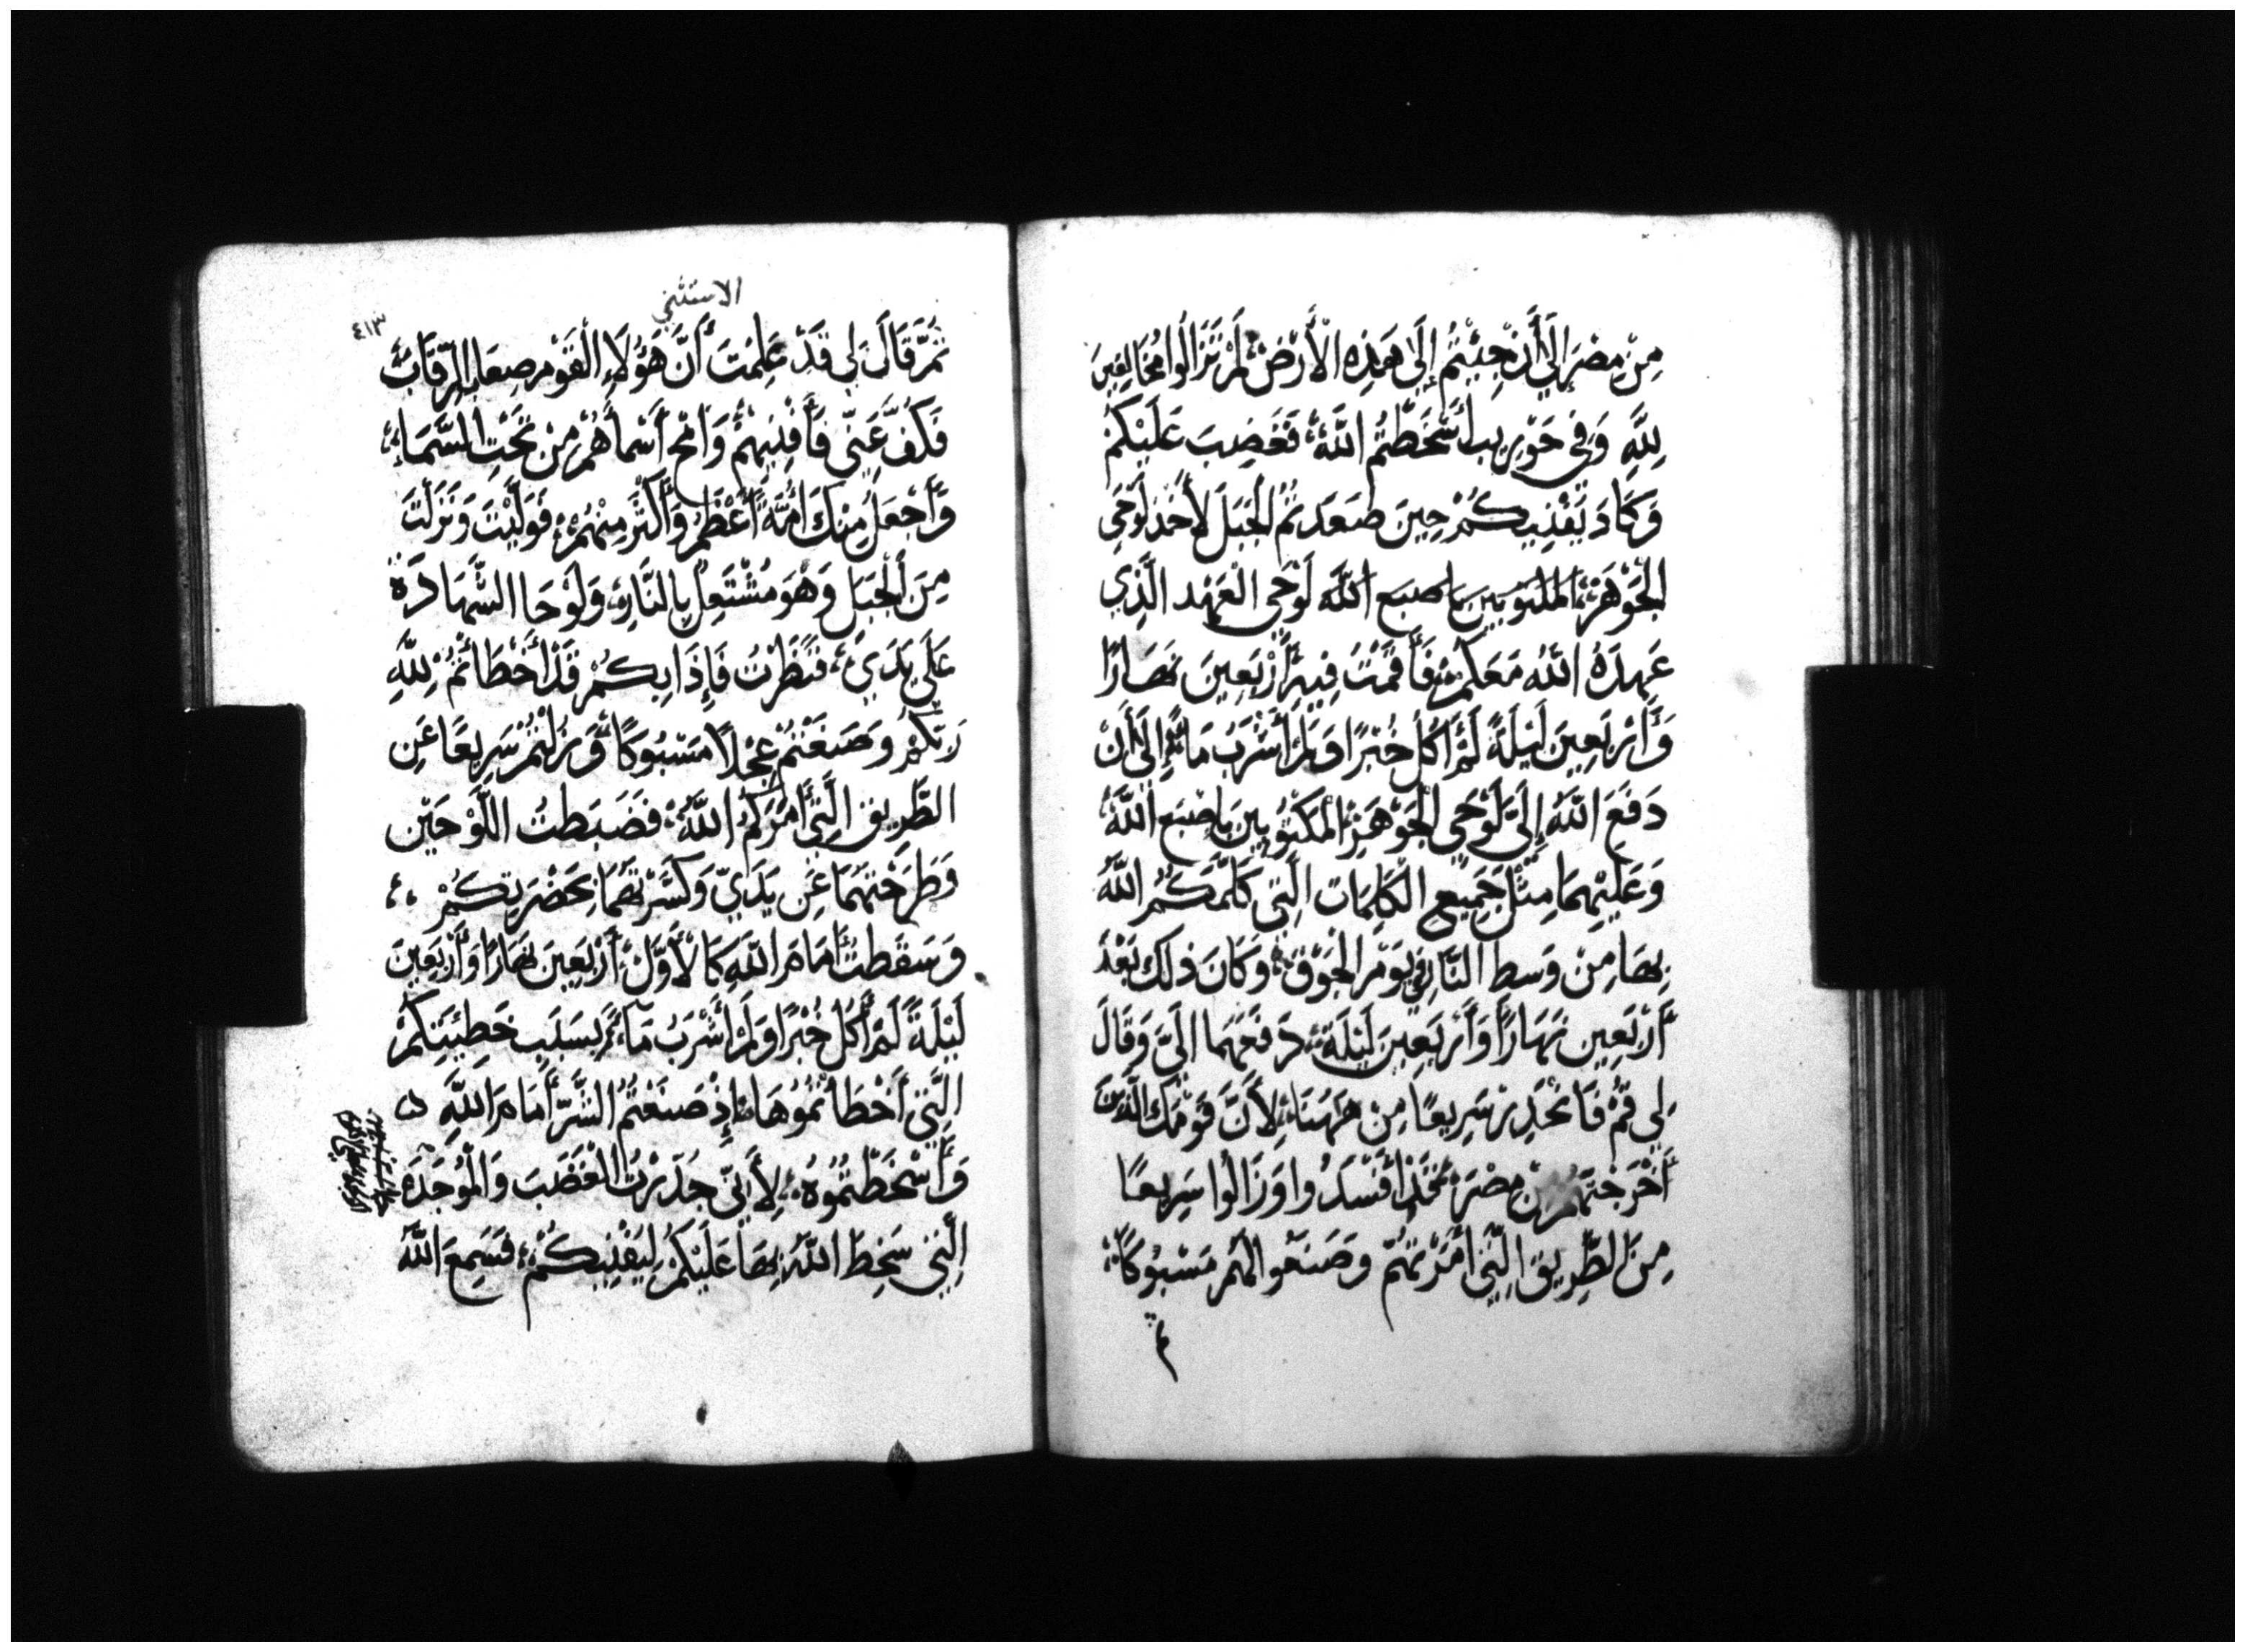 مِنْ مِصْرَ إِلَى أَنْ جِيْتُمْ إِلَى هَذِهِ الْأَرْضِ لَمْ تَزَالُوا مُخَالِفِينَ
لِلَّهِ وَفِي حَوْرِيب أَسْخَطْتُمُ اللَّهَ فَغَضِبَ عَلَيْكُمْ
وَكَادَ يُفْنِيكُمْ حِينَ صَعَدتُ الْجَبَلَ لِأَخُذَ لَوْحَي
الْجَوْهَرْ الْمَكْتُوبَيْنِ بِاصبَع اللَّهِ لَوْحَي الْعَهْدِ الَّذِي
عَهِدَهُ اللَّهُ مَعَكُمْ فَأَقَمْتُ فِيهِ أَرْبَعِينَ نَهَارًا
وَأَرْبَعِينَ لَيْلَةً لَمْ أَكُلْ خُبْزًا وَلَمْ أَشْرَبْ مَاءً إِلَى أَنْ
دَفَعَ اللَّهُ إِلَيَّ لَوْحَيِ الْجَوْهَرِ الْمَكْتُوبَيْنِ بِاصْبَعِ اللَّهِ
وَعَلَيْهِمَا مِثْلَ جَمِيعِ الْكَلِمَات الَّتِي كَلَّمَكُمُ اللَّهُ
بِهَا مِنْ وَسطِ النَّارِ فِي يَوْمِ الْجَوْقِ وَكَانَ ذلِكَ بَعْدَ
أَرْبَعِين نَهَارًا وَأَرْبَعِينَ لَيْلَة دَفَعَهُمَا الَيَّ وَقَالَ
لِي قُمْ فَانْحَدِرْ سَرِيعًا مِنْ هَهُنَا لِأَنَّ قَوْمَكَ الَّذِينَ
أَخْرَجْتَهُمْ مِنْ مِصْرَ قَدْ أَفْسَدُوا وَزَالُوا سَرِيعًا
مِنَ الطَّرِيقِ الَّتِي أَمَرْتَهُمْ وَصَنَعُوا لَهُمْ مَسْبُوكًا
ثم
الاستثني
٤١٣
ثُمَّ قَالَ لِي قَدْ عَلِمْتَ أَنَّ هَؤُلَاءِ الْقَوْمِ صِعَابُ الرِّقَابِ
فَكُفَّ عَنِّي فَأُفْنِيهِمْ وَامْحُ أَسْمأَهُمْ مِنْ تَحْتِ السَّمَاءِ
وَأَجْعَلَ مِنْكَ أُمَّةً أَعْظَمَ وَأَكْثَرَ مِنْهُمْ فَوَلَّيْتُ وَنَزَلْتُ
مِنَ الْجَبَلِ وَهْوَ مُشْتَعِلٌ بِالنَّارِ وَلَوْحَا الشَّهَادَة
عَلَى يَدَيَّ فَنَظَرْتُ فَإِذَا بِكُمْ قَدْ أَخْطَأْتُمْ لِلَّهِ
رَبِّكُمْ وَصَنَعْتُمْ عِجْلًا مَسْبُوكًا وَزُلْتُمْ سَرِيعًا عَنِ
الطَّرِيقِ الَّتِي أَمَرَكُمُ اللَّهُ فَضَبَطتُ اللَّوْحَيْنِ
وَطَرَحْتُهُمَا عَن يَدَيَّ وَكَسَّرْتُهُمَا بِحَضْرَتِكُمْ
وَسَقَطتُ أَمَامَ اللَّهِ كَالْأَوَّلِ أَرْبَعِينَ نَهَارًا وَأَرْبَعِينَ
لَيْلَةً لَمْ أَكُلْ خُبْزًا وَلَمْ أَشْرَبْ مَاءً بِسَبَبِ خَطِيئَتِكُمْ
الَّتِي أَخْطَأْتُمُوهَا إِذْ صَنَعْتُمُ الشَّرَّ أَمَامَ اللَّهِ
وَأَسْخَطْتُمُوهُ لِأَنِّي حَذِرْتُ الْغَضَبَ وَالْمُوجَدَةَ
الَّتِي سَخِطَ اللَّهُ بِهَا عَلَيْكُمْ لِيُفْنِيكُمْ فَسَمِعَ اللَّهُ